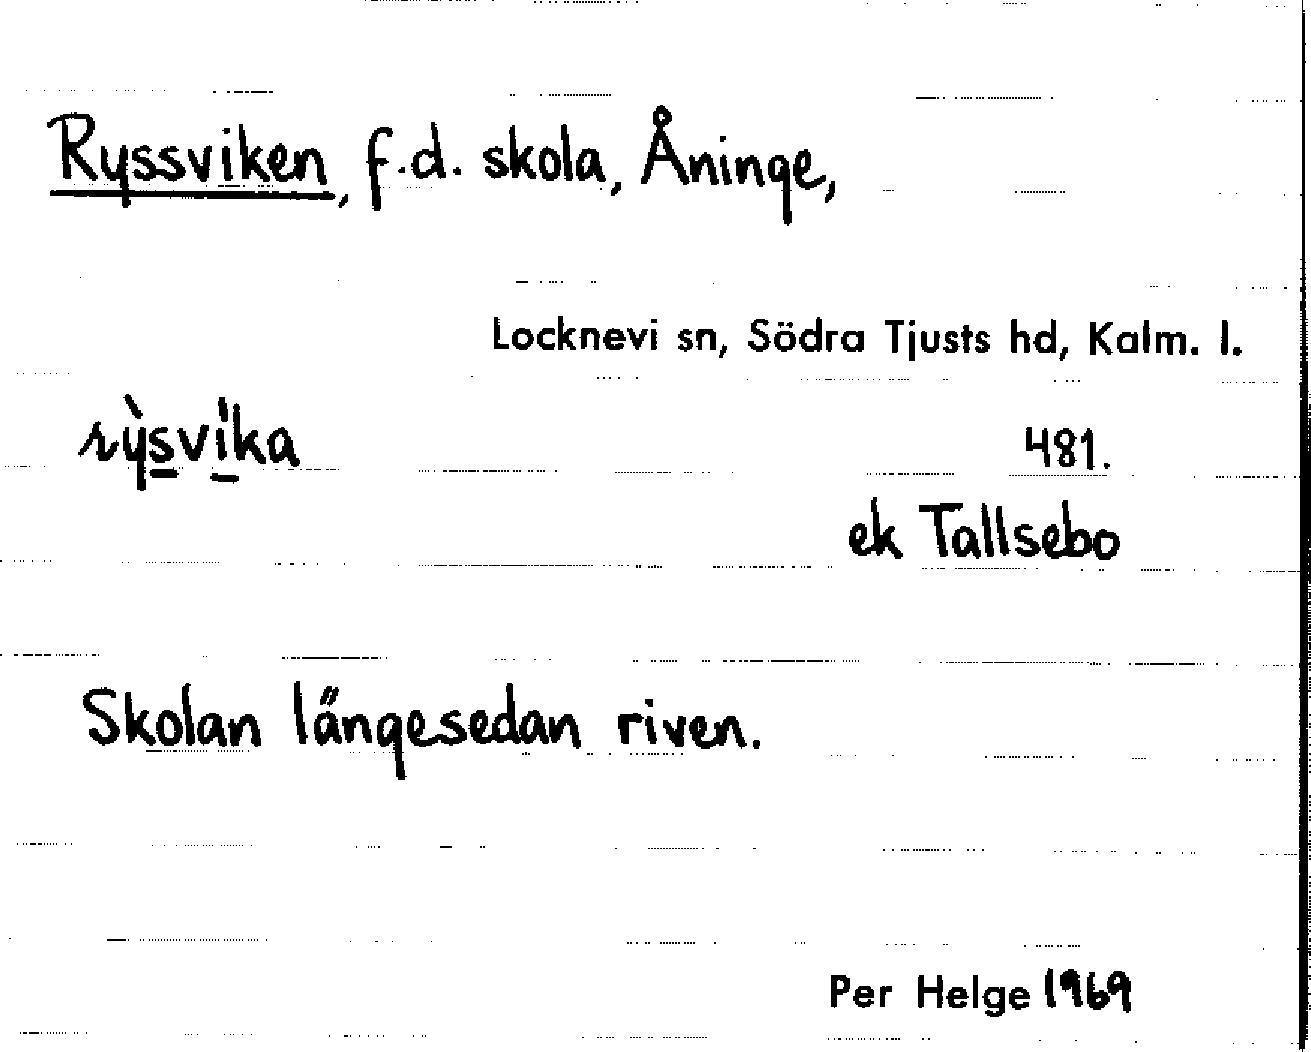 Ryssviken, f.d. skola, Åninge,
Locknevi sn, Södra Tjusts hd, Kalm. l.
rỳs̲vi̲̍ka
481.
ek Tallsebo
Skolan längesedan riven.
Per Helge 1969